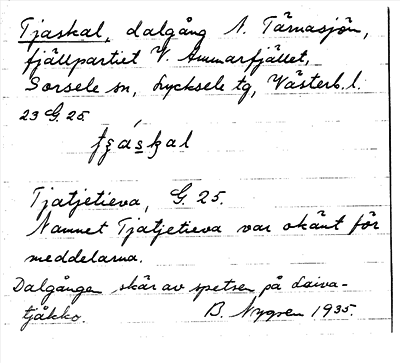 Tjaskal, dalgång N. Tärnasjön,
fjällpartiet V. Ammarfjället,
Sorsele sn, Lycksele tg, Västerb. l.
23 G. 25
Tjatjetieva, G. 25.
Namnet Tjatjetieva var okänt för
meddelarna.
Dalgången skär av spetsen på Laiva-
tjåkko. B. Nygren 1935.